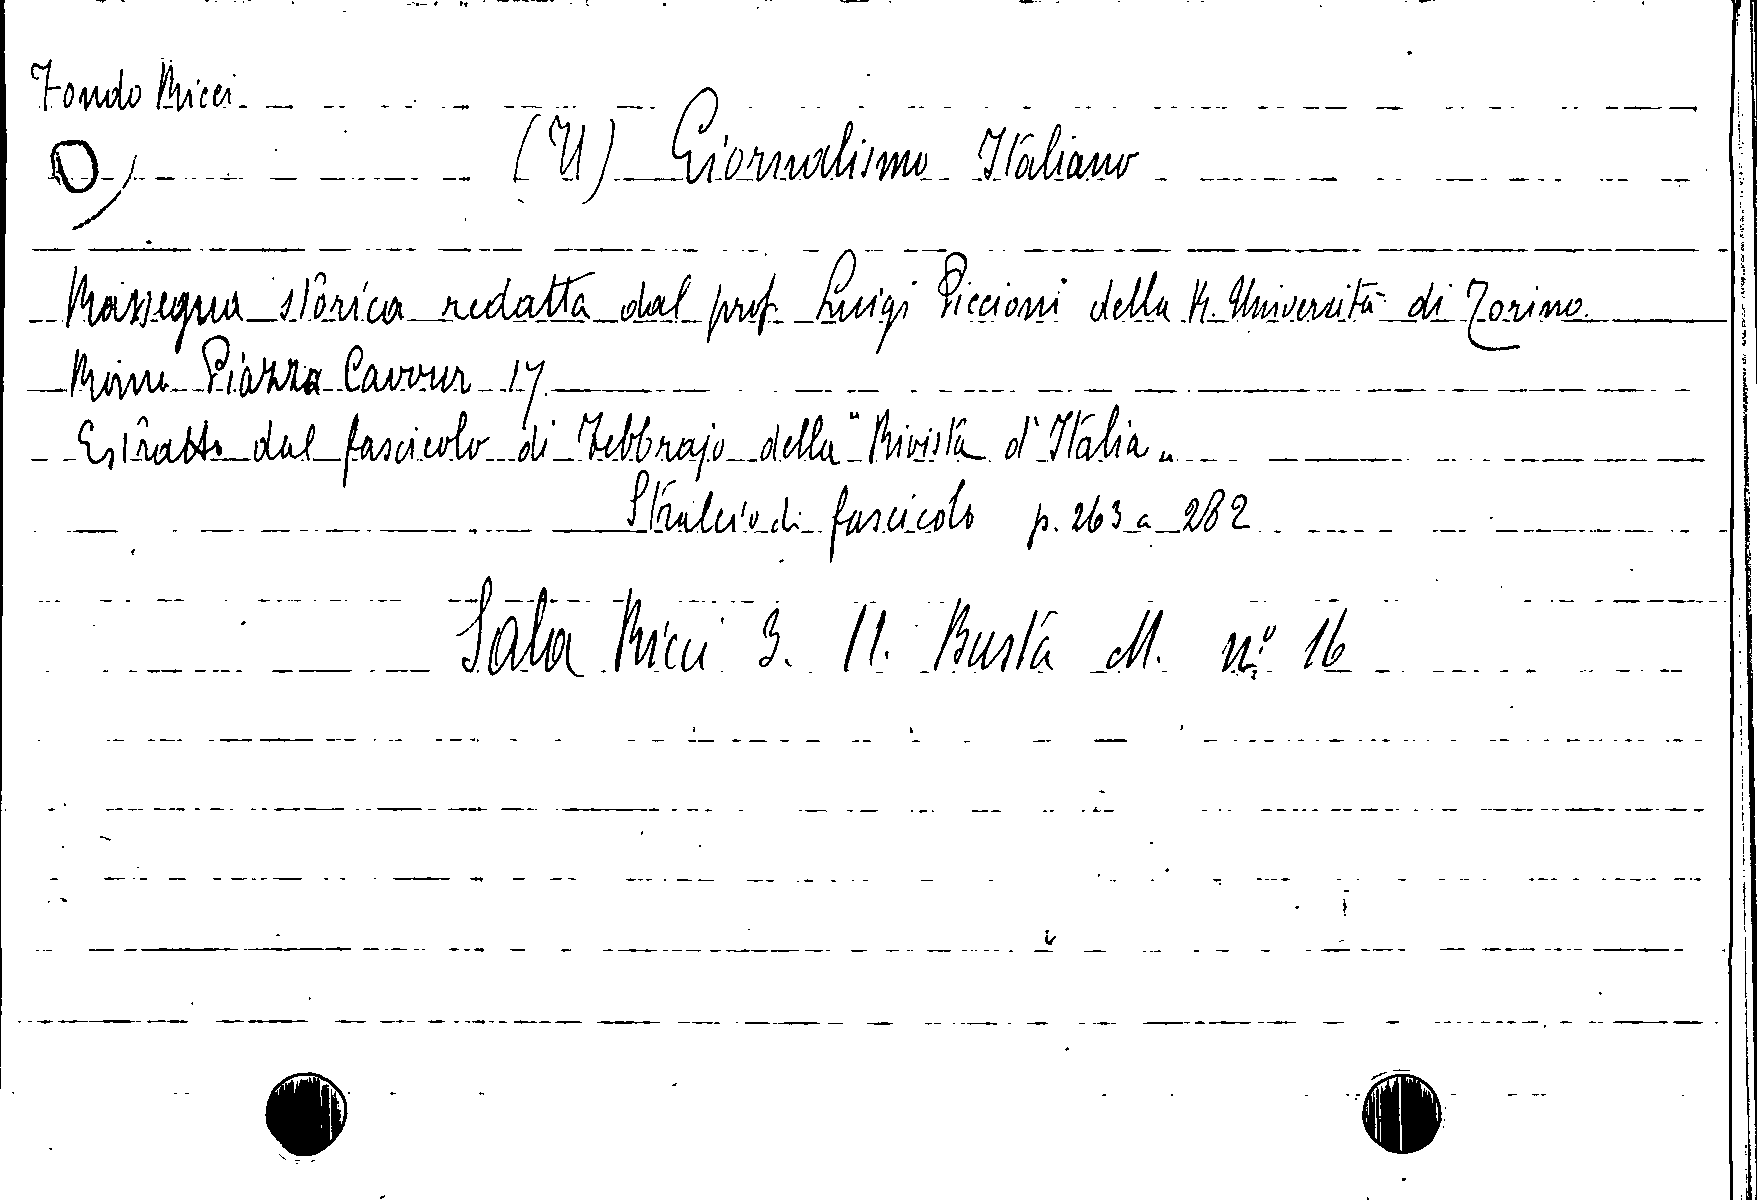 Fondo Ricci
(Il) Giornalismo Italiano
Rassegna storica redatta dal prof. Luigi Piccioni della R. Università di Torino
Roma Piazza Cavour 17
Estratto dal fascicolo di Febbrajo della "Rivista d'Italia„
Stralcio di fascicolo p. 263 a 282
Sala Ricci 3. 11. Busta M. n.º 16